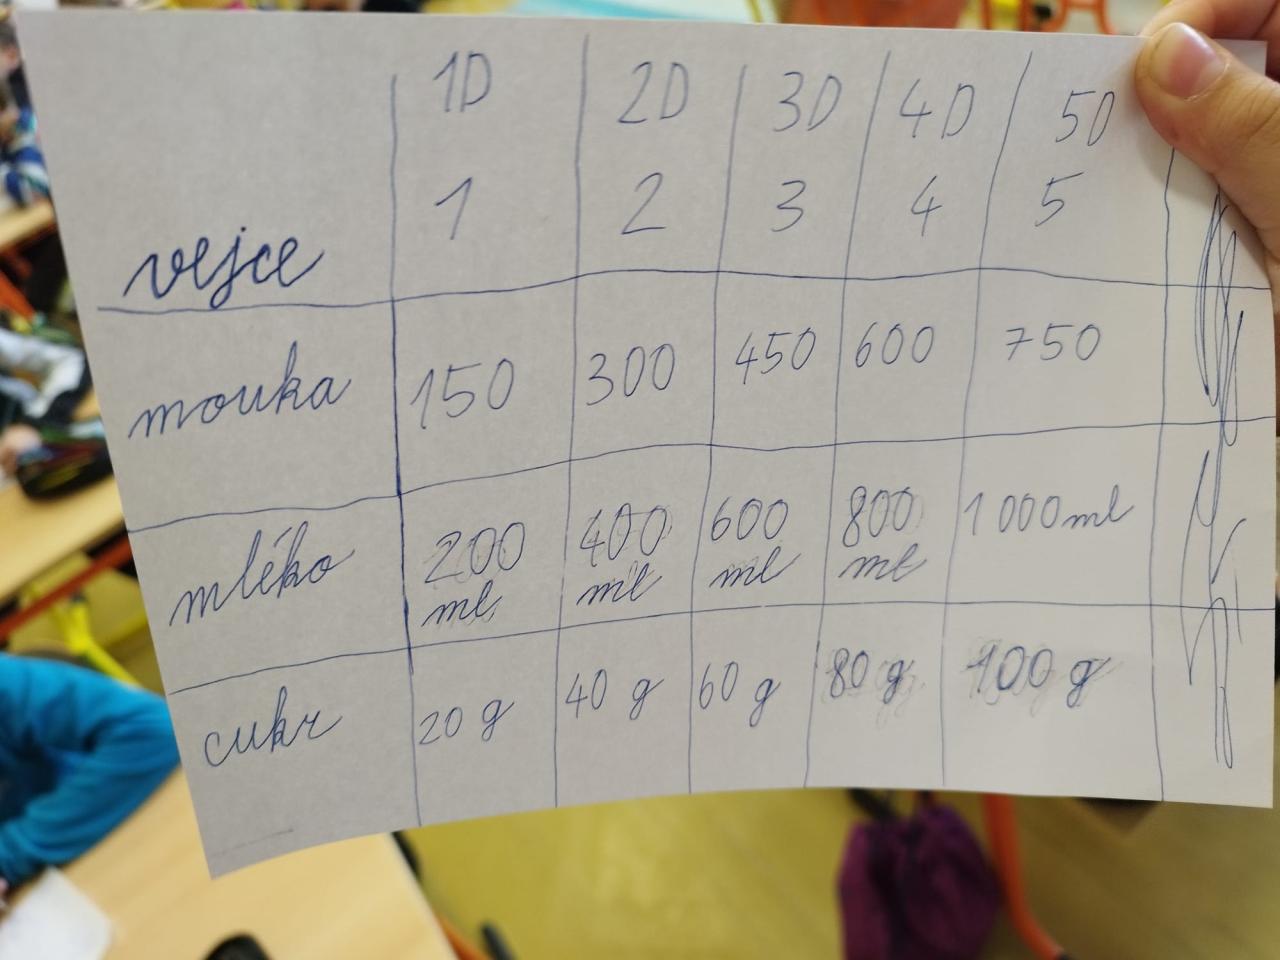 1D 2D 3D 4D 5D
vejce 1 2 3 4 5
mouka 150 300 450 600 750
mléko 200 ml 400 ml 600 ml 800 ml 1000 ml
cukr 20 g 40 g 60 g 80 g 100 g